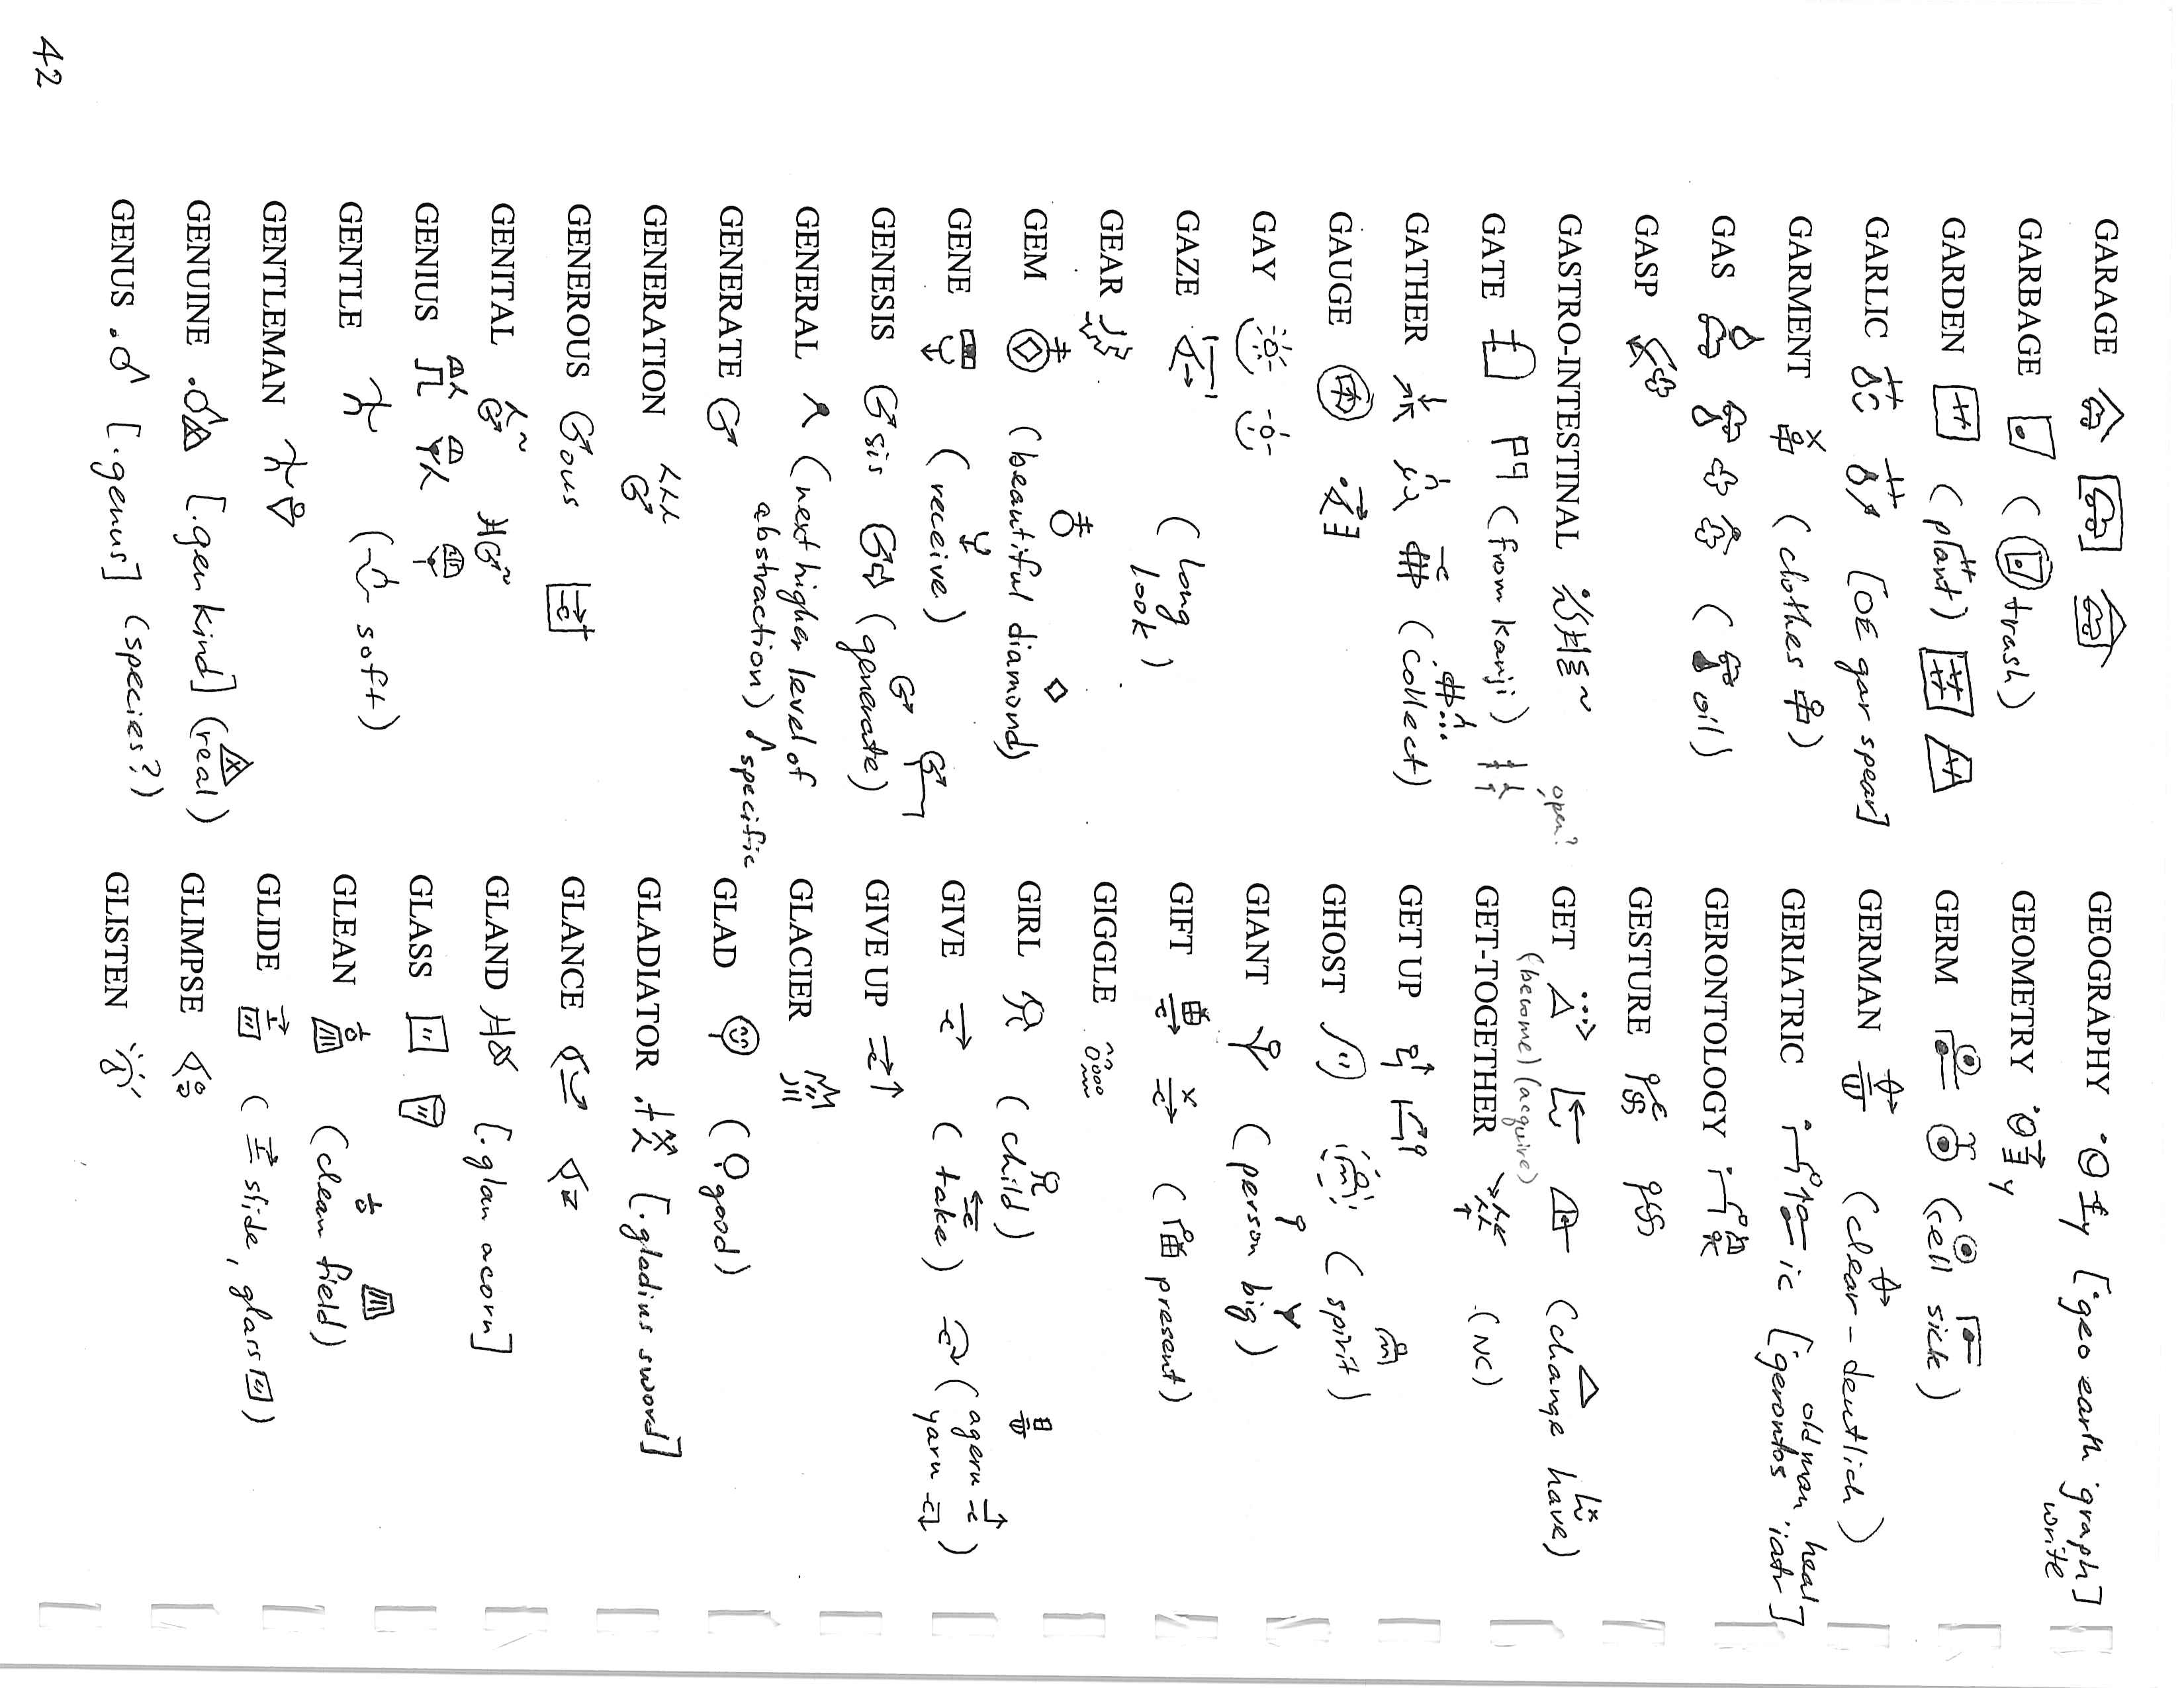 GARAGE
GARBAGE ( trash)
GARDEN (plant)
GARLIC [OE gar spear]
GARMENT (clothes)
GAS ( oil)
GASP
GASTRO-INTESTINAL
GATE (from kanji) open?
GATHER (collect)
GAUGE
GAY
GAZE (long look)
GEAR
GEM (beautiful diamond)
GENE (receive)
GENESIS sis (generate)
GENERAL (next higher level of
abstraction) specific
GENERATE
GENERATION
GENEROUS ous
GENITAL
GENIUS
GENTLE ( soft)
GENTLEMAN
GENUINE [.gen kind] (real)
GENUS [.genus] (species?)
GEOGRAPHY y [.geo earth .graph] write
GEOMETRY y
GERM (cell sick)
GERMAN (clear - deutlich)
GERIATRIC ic [.gerontos old man .iatr heal]
GERONTOLOGY
GESTURE
GET (change have)
(become) (acquire)
GET-TOGETHER (NC)
GET UP
GHOST (spirit)
GIANT (person big)
GIFT ( present)
GIGGLE
GIRL (child)
GIVE ( take) (ageru
yaru )
GIVE UP
GLACIER
GLAD ( good)
GLADIATOR [.gladius sword]
GLANCE
GLAND [.glan acorn]
GLASS
GLEAN (clean field)
GLIDE ( slide, glass )
GLIMPSE
GLISTEN
42